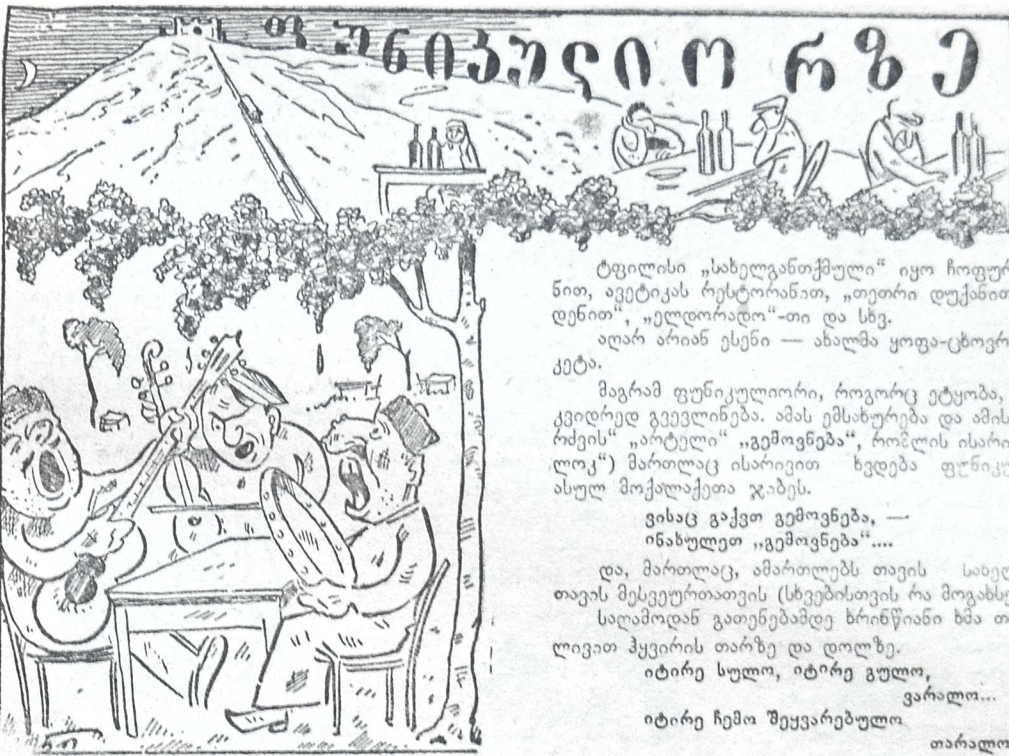 ფუნიკულიორზე
ტფილისი „სახელგანთქმული“ იყო ჩოფურ
ნით, ავეტიკას რესტორანით, „თეთრი დუქანით
დენით“, „ელდორადო“-თი და სხვ.
აღარ არიან ესენი — ახალმა ყოფა-ცხოვრ
კეტა.
მაგრამ ფუნიკულიორი, როგორც ეტყობა,
კვიდრედ გვევლინება. ამას ემსახურება და ამის
რძვის“ „არტელი“ „გემოვნება“, რომლის ისარი
ლოკ“) მართლაც ისარივით ხვდება ფუნიკუ
ასულ მოქალაქეთა ჯიბეს.
ვისაც გაქვთ გემოვნება, —
ინახულეთ „გემოვნება“....
და, მართლაც, ამართლებს თავის სახელ
თავის მესვეურთათვის (სხვებისთვის რა მოგახსე
საღამოდან გათენებამდე ხრინწიანი ხმა თ
ლივით ჰყვირის თარზე და დოლზე.
იტირე სულო, იტირე გულო,
ვარალო...
იტირე ჩემო შეყვარებულო
თარალო